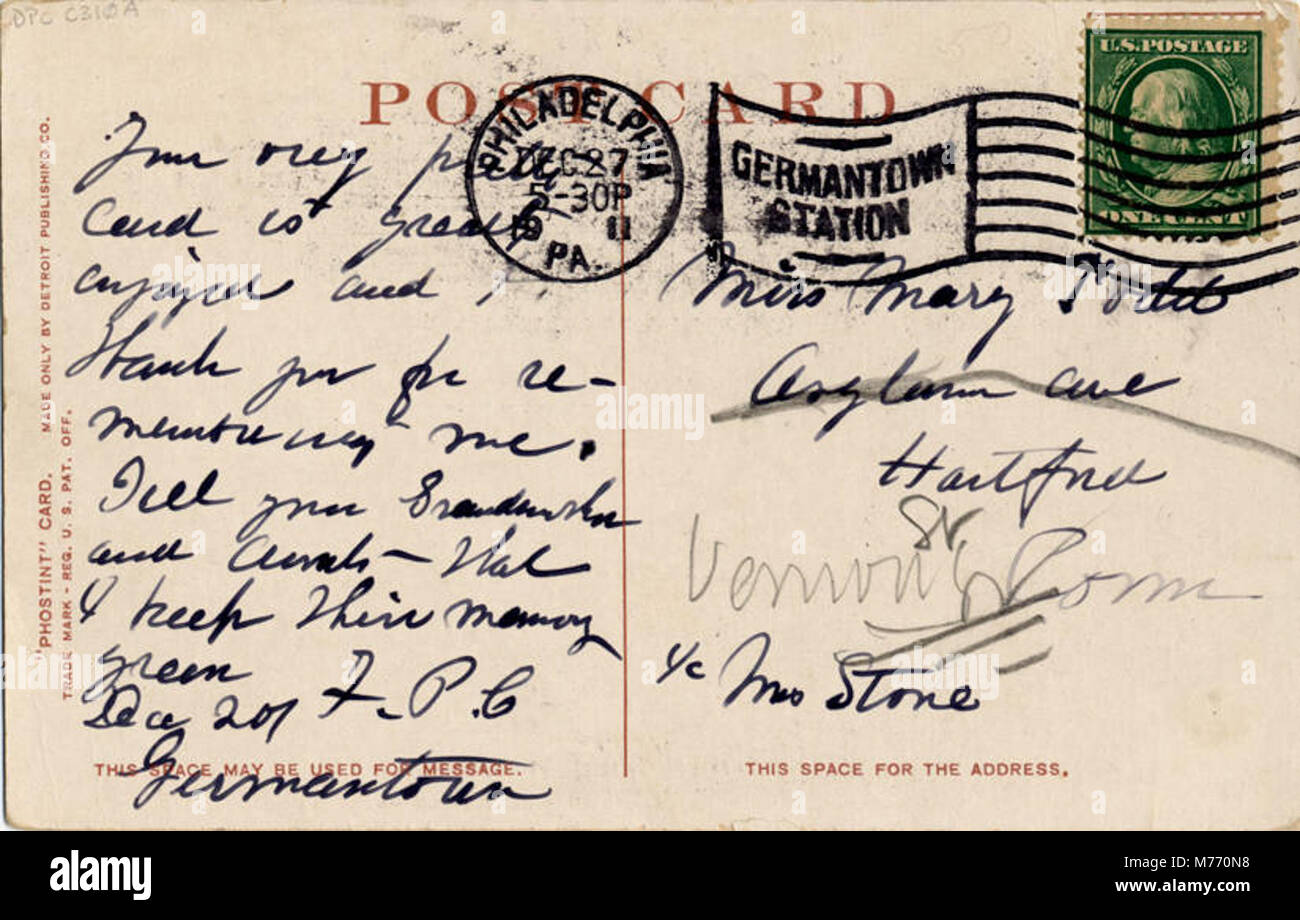 DPC C310A
POST CARD
PHILADELPHIA
DEC 27
5-30P
19 11
PA.
GERMANTOWN
STATION
U.S. POSTAGE
ONE CENT
"PHOSTINT" CARD. MADE ONLY BY DETROIT PUBLISHING CO.
TRADE MARK - REG. U. S. PAT. OFF.
Your very pretty
card is greatly
enjoyed and I
thank you for re-
membering me.
Tell your Grandmother
and Aunts - that
I keep their memory
green
F. P. C
Germantown
THIS SPACE MAY BE USED FOR MESSAGE.
Miss Mary Todd
Asylum ave
Hartford
Conn
c/o Mrs Stone
THIS SPACE FOR THE ADDRESS.
alamy
Image ID: M770N8
www.alamy.com